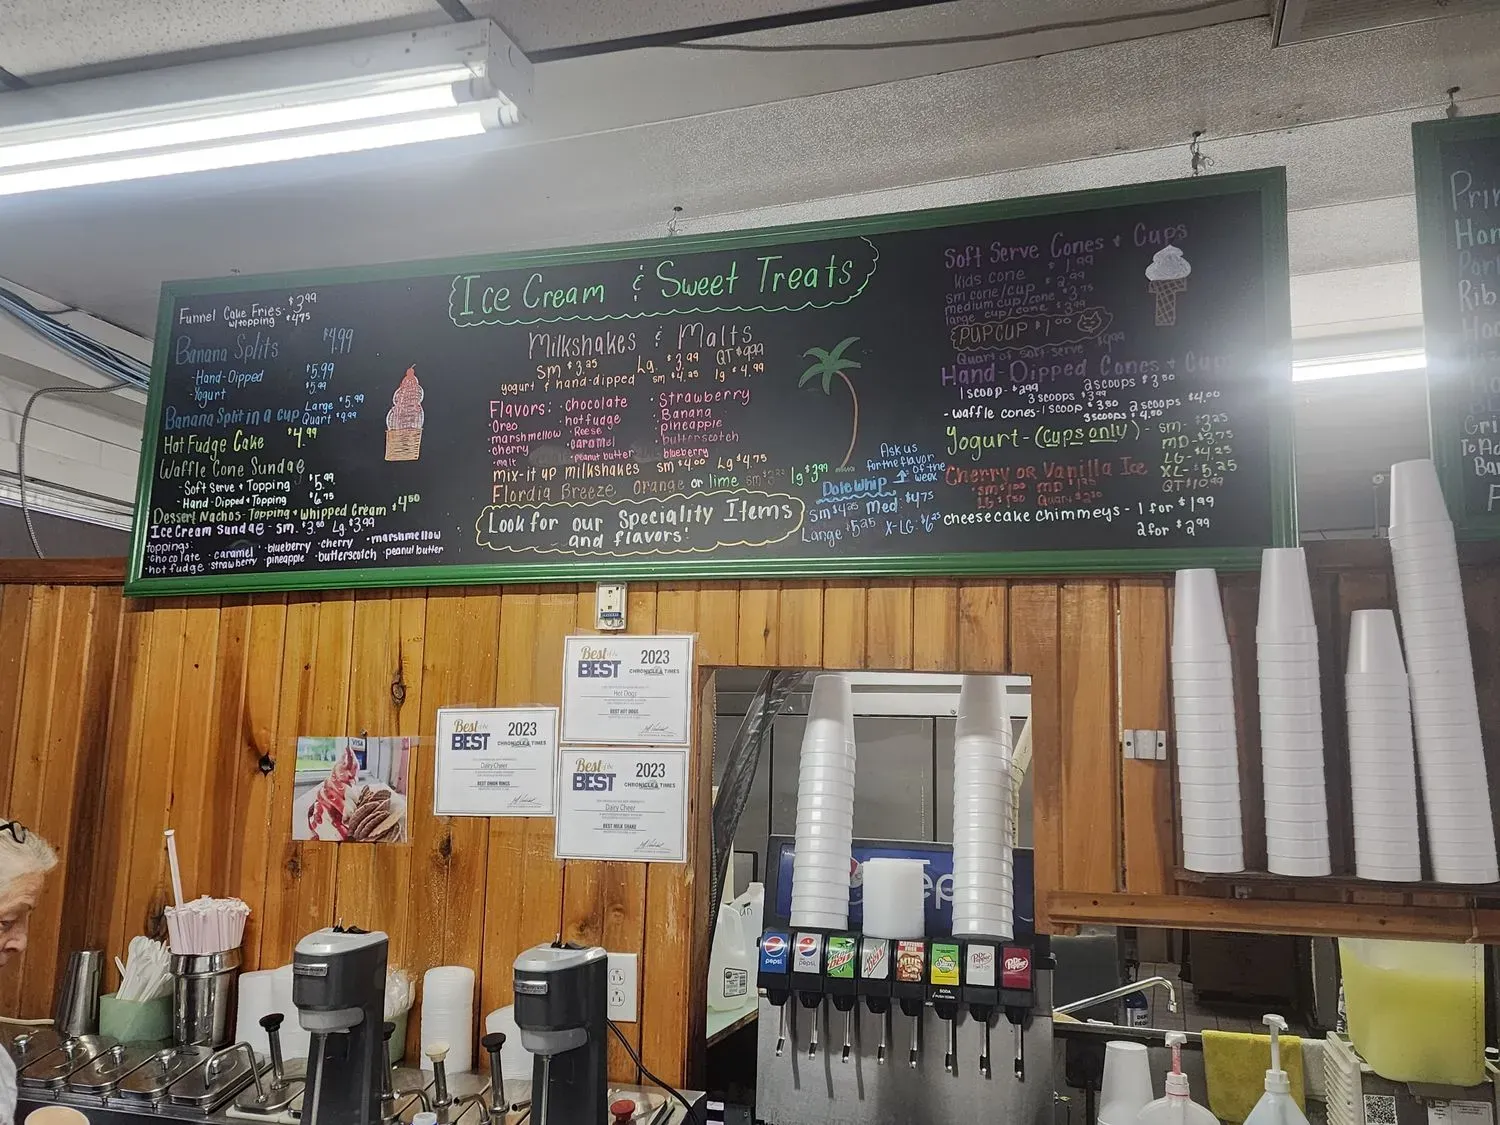 Ice Cream & Sweet Treats
Funnel Cake Fries: $3.99
w/topping $4.75
Banana Splits $4.99
-Hand-Dipped $5.99
-Yogurt $5.99
Banana Split in a cup Large $5.99
Quart $9.99
Hot Fudge Cake $4.99
Waffle Cone Sundae
-Soft Serve + Topping $5.99
-Hand-Dipped + Topping $6.75
Dessert Nachos-Topping + Whipped Cream $4.50
Ice Cream Sundae - Sm. $3.50 Lg. $3.99
toppings:
·chocolate ·caramel ·blueberry ·cherry ·marshmellow
·hot fudge ·strawberry ·pineapple ·butterscotch ·peanut butter
Milkshakes & Malts
Sm $3.25 Lg. $3.99 QT $9.99
yogurt & hand-dipped sm $4.25 lg $4.99
Flavors: ·chocolate ·Strawberry
·Oreo ·hot fudge ·Banana
·marshmellow ·Reese ·pineapple
·cherry ·caramel ·butterscotch
·malt ·peanut butter ·blueberry
mix-it up milkshakes sm $4.00 Lg $4.75
Flordia Breeze Orange or lime sm lg $3.99
Look for our Speciality Items
and flavors!
Ask us
for the flavor
of the
week
Dole Whip
Sm $4.25 Med: $4.75
Large $5.25 X-LG: $6.25
Soft Serve Cones + Cups
Kids cone $1.99
sm cone/cup $2.99
medium cup/cone $3.75
large cup/cone $3.99
PUPCUP $1.00
Quart of soft-serve $9.99
Hand-Dipped Cones + Cups
1 scoop-$2.99 2 scoops $3.50
3 scoops $3.99
-waffle cones-1 scoop $3.50 2 scoops $4.00
3 scoops $4.50
Yogurt-(cups only)-sm-$3.25
MD-$3.75
LG-$4.25
XL-$5.25
QT $10.99
Cherry or Vanilla Ice
Sm $1.00 MD $1.25
LG $1.50
cheesecake chimmeys-1 for $1.99
2 for $2.99
Best of the
BEST
2023
CHRONICLE & TIMES
Hot Dogs
BEST HOT DOGS
Best of the
BEST
2023
CHRONICLE & TIMES
Dairy Cheer
BEST ONION RINGS
Best of the
BEST
2023
CHRONICLE & TIMES
Dairy Cheer
BEST MILK SHAKE
VISA
pepsi
pepsi
CAFFEINE FREE
MUG
Dr Pepper
SODA